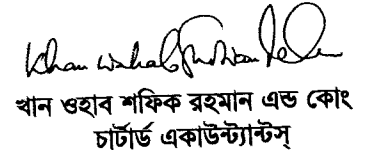 Khan Wahab Shafique Rahman & Co
খান ওহাব শফিক রহমান এন্ড কোং
চার্টার্ড একাউন্ট্যান্টস্